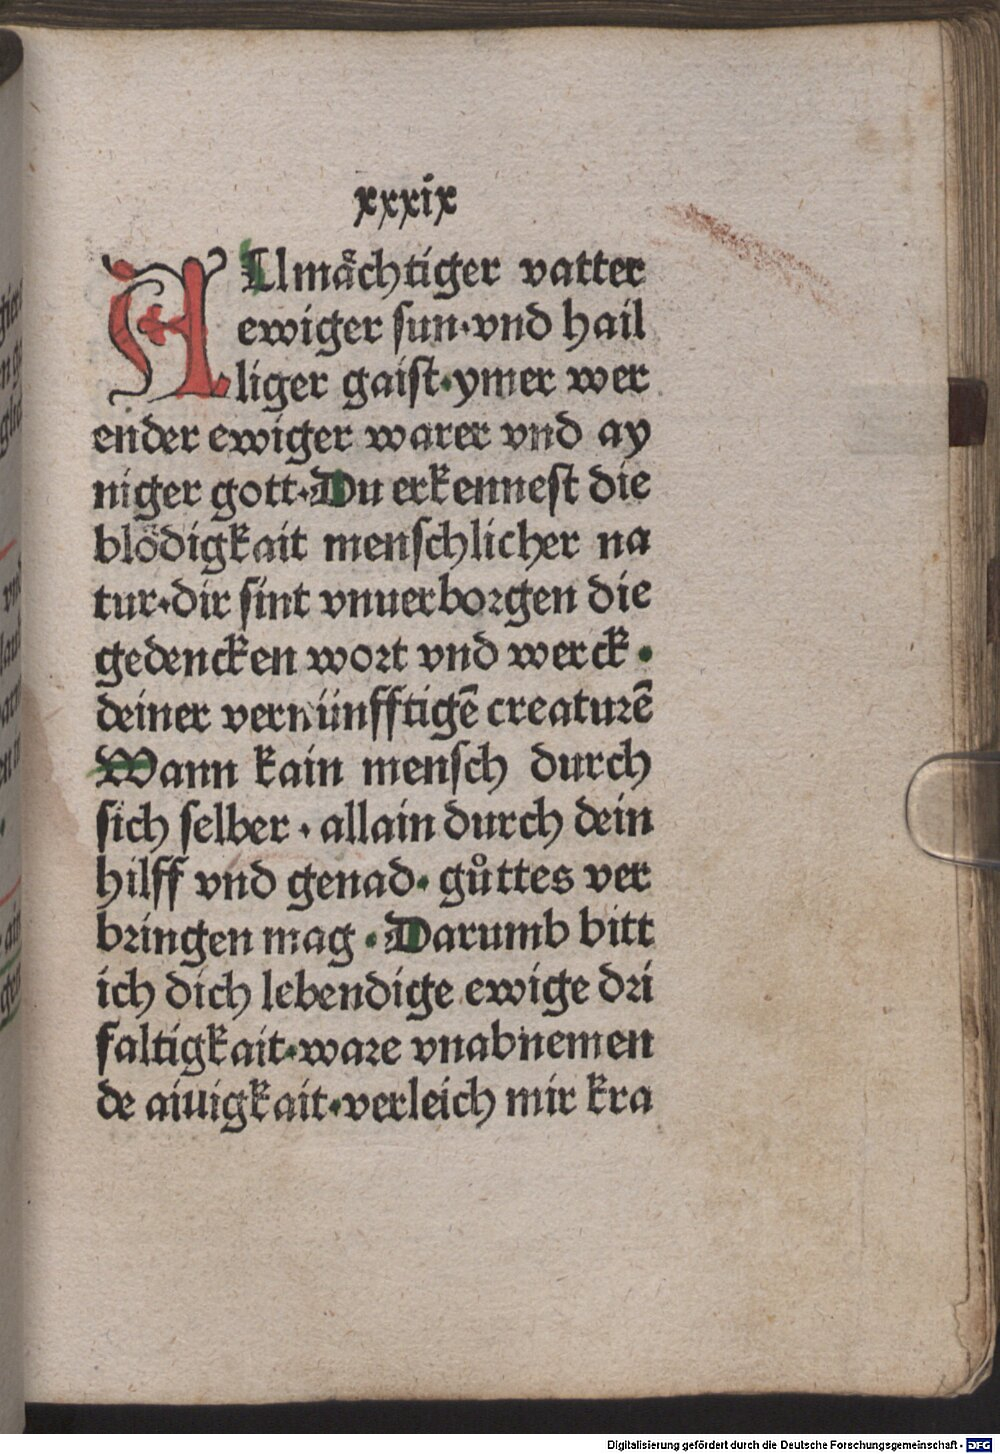 xxxix
ALlmächtiger vatter
ewiger sun·vnd hail
liger gaist·ymer wer
ender ewiger warer vnd ay
niger gott·Du erkennest die
blödigkait menschlicher na
tur·dir sint vnuerborgen die
gedencken wort vnd werck·
deiner vernünfftigē creaturē
Wann kain mensch durch
sich selber·allain durch dein
hilff vnd genad·gůttes ver
bringen mag·Darumb bitt
ich dich lebendige ewige dri
faltigkait·ware vnabnemen
de aiuigkait·verleich mir kra
Digitalisierung gefördert durch die Deutsche Forschungsgemeinschaft - DFG